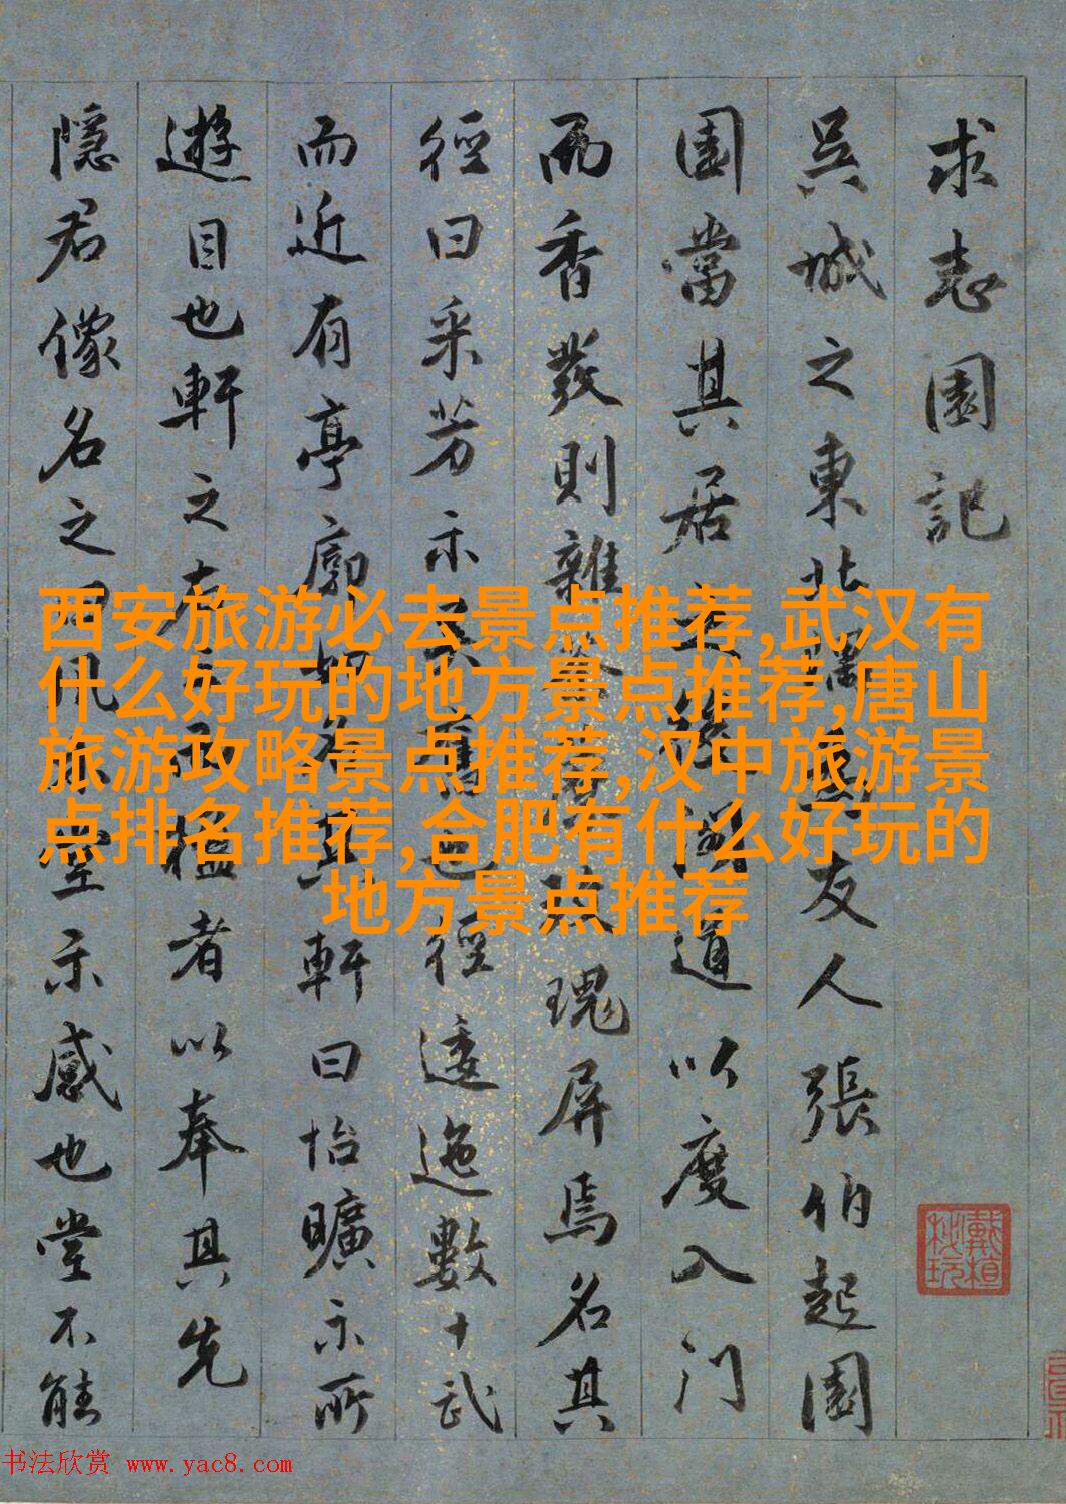 求志園記
吳城之東北隅
友人張伯起園
園當其居
道以度入門
而香發則雜
瑰屏焉名其
徑曰采芳示
舊也徑逶迤數十武
而近有亭廓如
其軒曰怡曠示所
遊目也軒之右
楹者以奉其先
隱君像名之曰風
堂示感也堂不能
西安旅游必去景点推荐,武汉有
什么好玩的地方景点推荐,唐山
旅游攻略景点推荐,汉中旅游景
点排名推荐,合肥有什么好玩的
地方景点推荐
书法欣赏 www.yac8.com